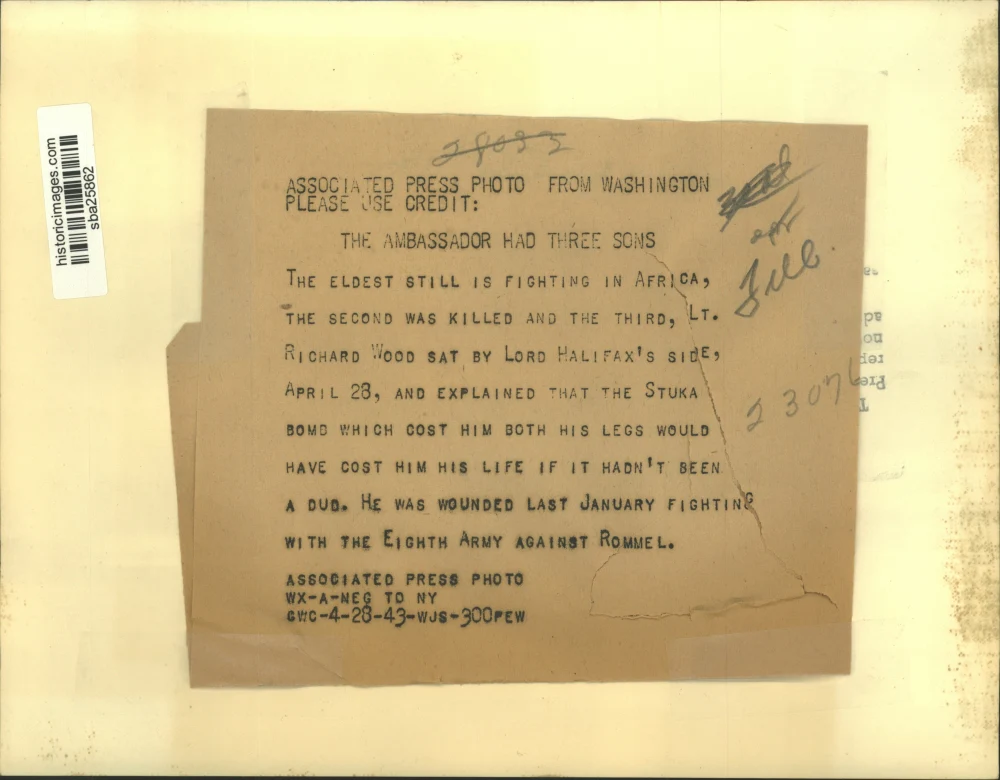 28033
ASSOCIATED PRESS PHOTO FROM WASHINGTON
PLEASE USE CREDIT:
THE AMBASSADOR HAD THREE SONS
THE ELDEST STILL IS FIGHTING IN AFRICA,
THE SECOND WAS KILLED AND THE THIRD, LT.
RICHARD WOOD SAT BY LORD HALIFAX'S SIDE,
APRIL 28, AND EXPLAINED THAT THE STUKA
BOMB WHICH COST HIM BOTH HIS LEGS WOULD
HAVE COST HIM HIS LIFE IF IT HADN'T BEEN
A DUD. HE WAS WOUNDED LAST JANUARY FIGHTING
WITH THE EIGHTH ARMY AGAINST ROMMEL.
ASSOCIATED PRESS PHOTO
WX-A-NEG TO NY
GWC-4-28-43-WJS-300PEW
23076
historicimages.com
sba25862